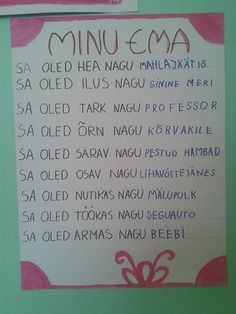 MINU EMA
SA OLED HEA NAGU MAHLAJÄÄTIS
SA OLED ILUS NAGU SININE MERI
SA OLED TARK NAGU PROFESSOR
SA OLED ÕRN NAGU KÕRVAKILE
SA OLED SÄRAV NAGU PESTUD HAMBAD
SA OLED OSAV NAGU LIHAVÕTTEJÄNES
SA OLED NUTIKAS NAGU MÄLUPULK
SA OLED TÖÖKAS NAGU SEGUAUTO
SA OLED ARMAS NAGU BEEBI